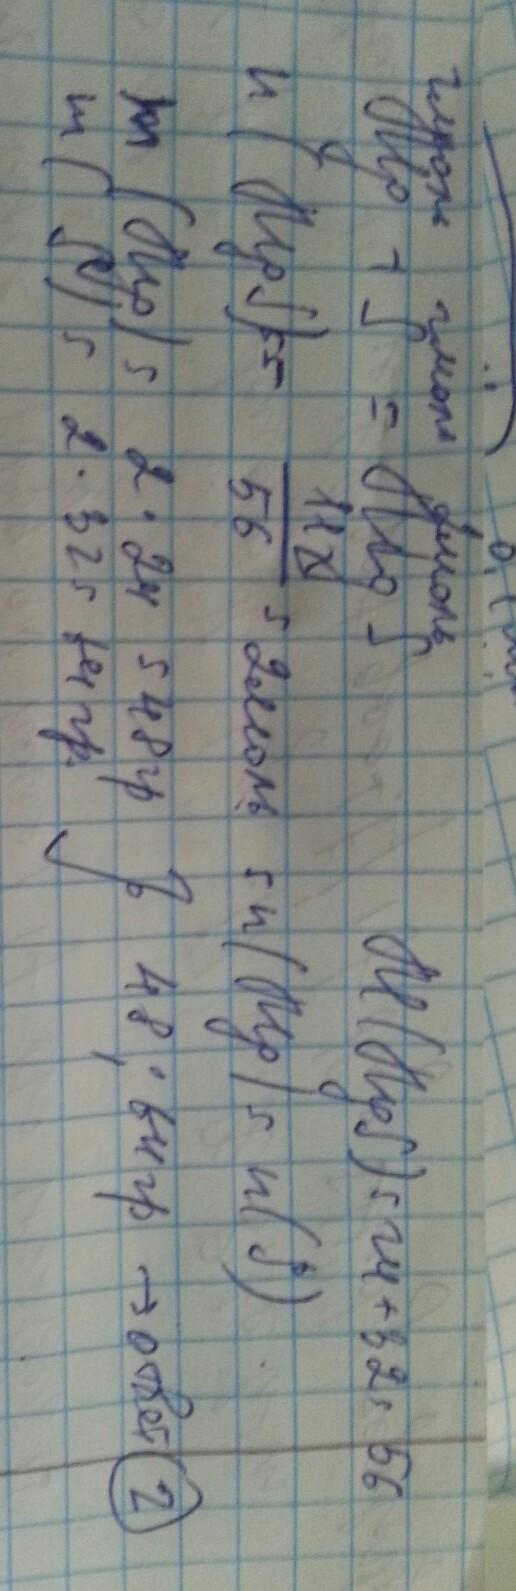 2моль 2моль 2моль
Mg + S = MgS M(MgS) = 24 + 32 = 56
n(MgS) = 112/56 = 2моль = n(Mg) = n(S)
m(Mg) = 2·24 = 48гр 48, 64гр → ответ 2
m(S) = 2·32 = 64гр.